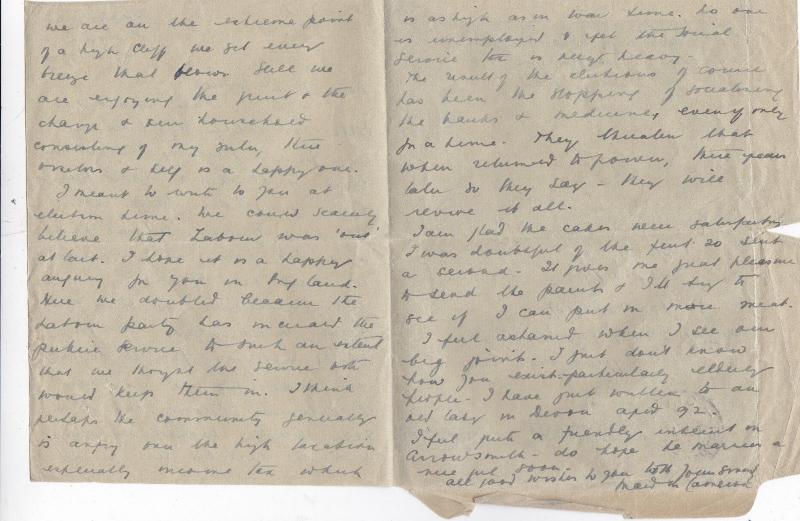 we are on the extreme point
of a high cliff we get every
breeze that blows. Still we
are enjoying the quiet & the
change & our household
consisting of my sister, three
visitors & self is a happy one.
I meant to write to you at
election time. We could scarcely
believe that Labour was 'out'
at last. I hope it is a happy
augury for you in England.
Here we doubted because the
Labour party has increased the
public service to such an extent
that we thought the service vote
would keep them in. I think
perhaps the community generally
is angry over the high taxation
especially income tax which
is as high as in war time. No one
is unemployed & yet the Social
Service tax is very heavy.
The result of the elections of course
has been the stopping of socialising
the banks & medicine, even if only
for a time. They threaten that
when returned to power, three years
later so they say - they will
revive it all.
I am glad the cakes were satisfactory
I was doubtful of the first so sent
a second. It gives me great pleasure
to send the parcels & I'll try to
see if I can put in more meat.
I feel ashamed when I see our
big joints. I just don't know
how you exist - particularly elderly
people - I have just written to an
old lady in Devon aged 92.
I feel quite a friendly interest in
Arrowsmith - do hope he marries a
nice girl soon.
all good wishes to you both
Cameron